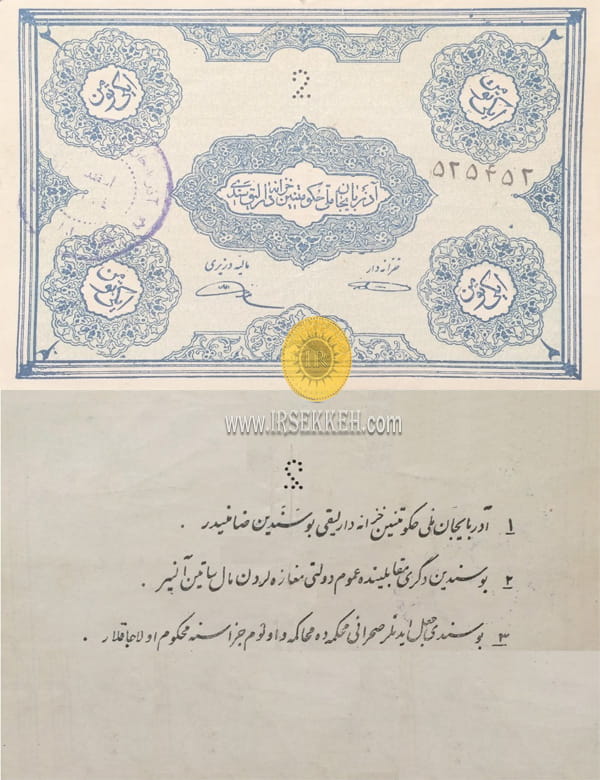 2
۵۲۵۴۵۲
آذربایجان ملی حکومتنین خزانه دارلیق سندی
خزانه دار
مالیه وزیری
IR
www.IRSEKKEH.com
۱ آذربایجان ملی حکومتنین خزانه داریلیقی بو سندین ضامنیدر .
۲ بو سندین دگری مقابلینده عموم دولتی مغازه لردن مال ساتین آلنیر .
۳ بو سندی جعل ایدنلر صحرائی محکمه ده محاکمه و اولوم جزاسنه محکوم اولاجاقلار .